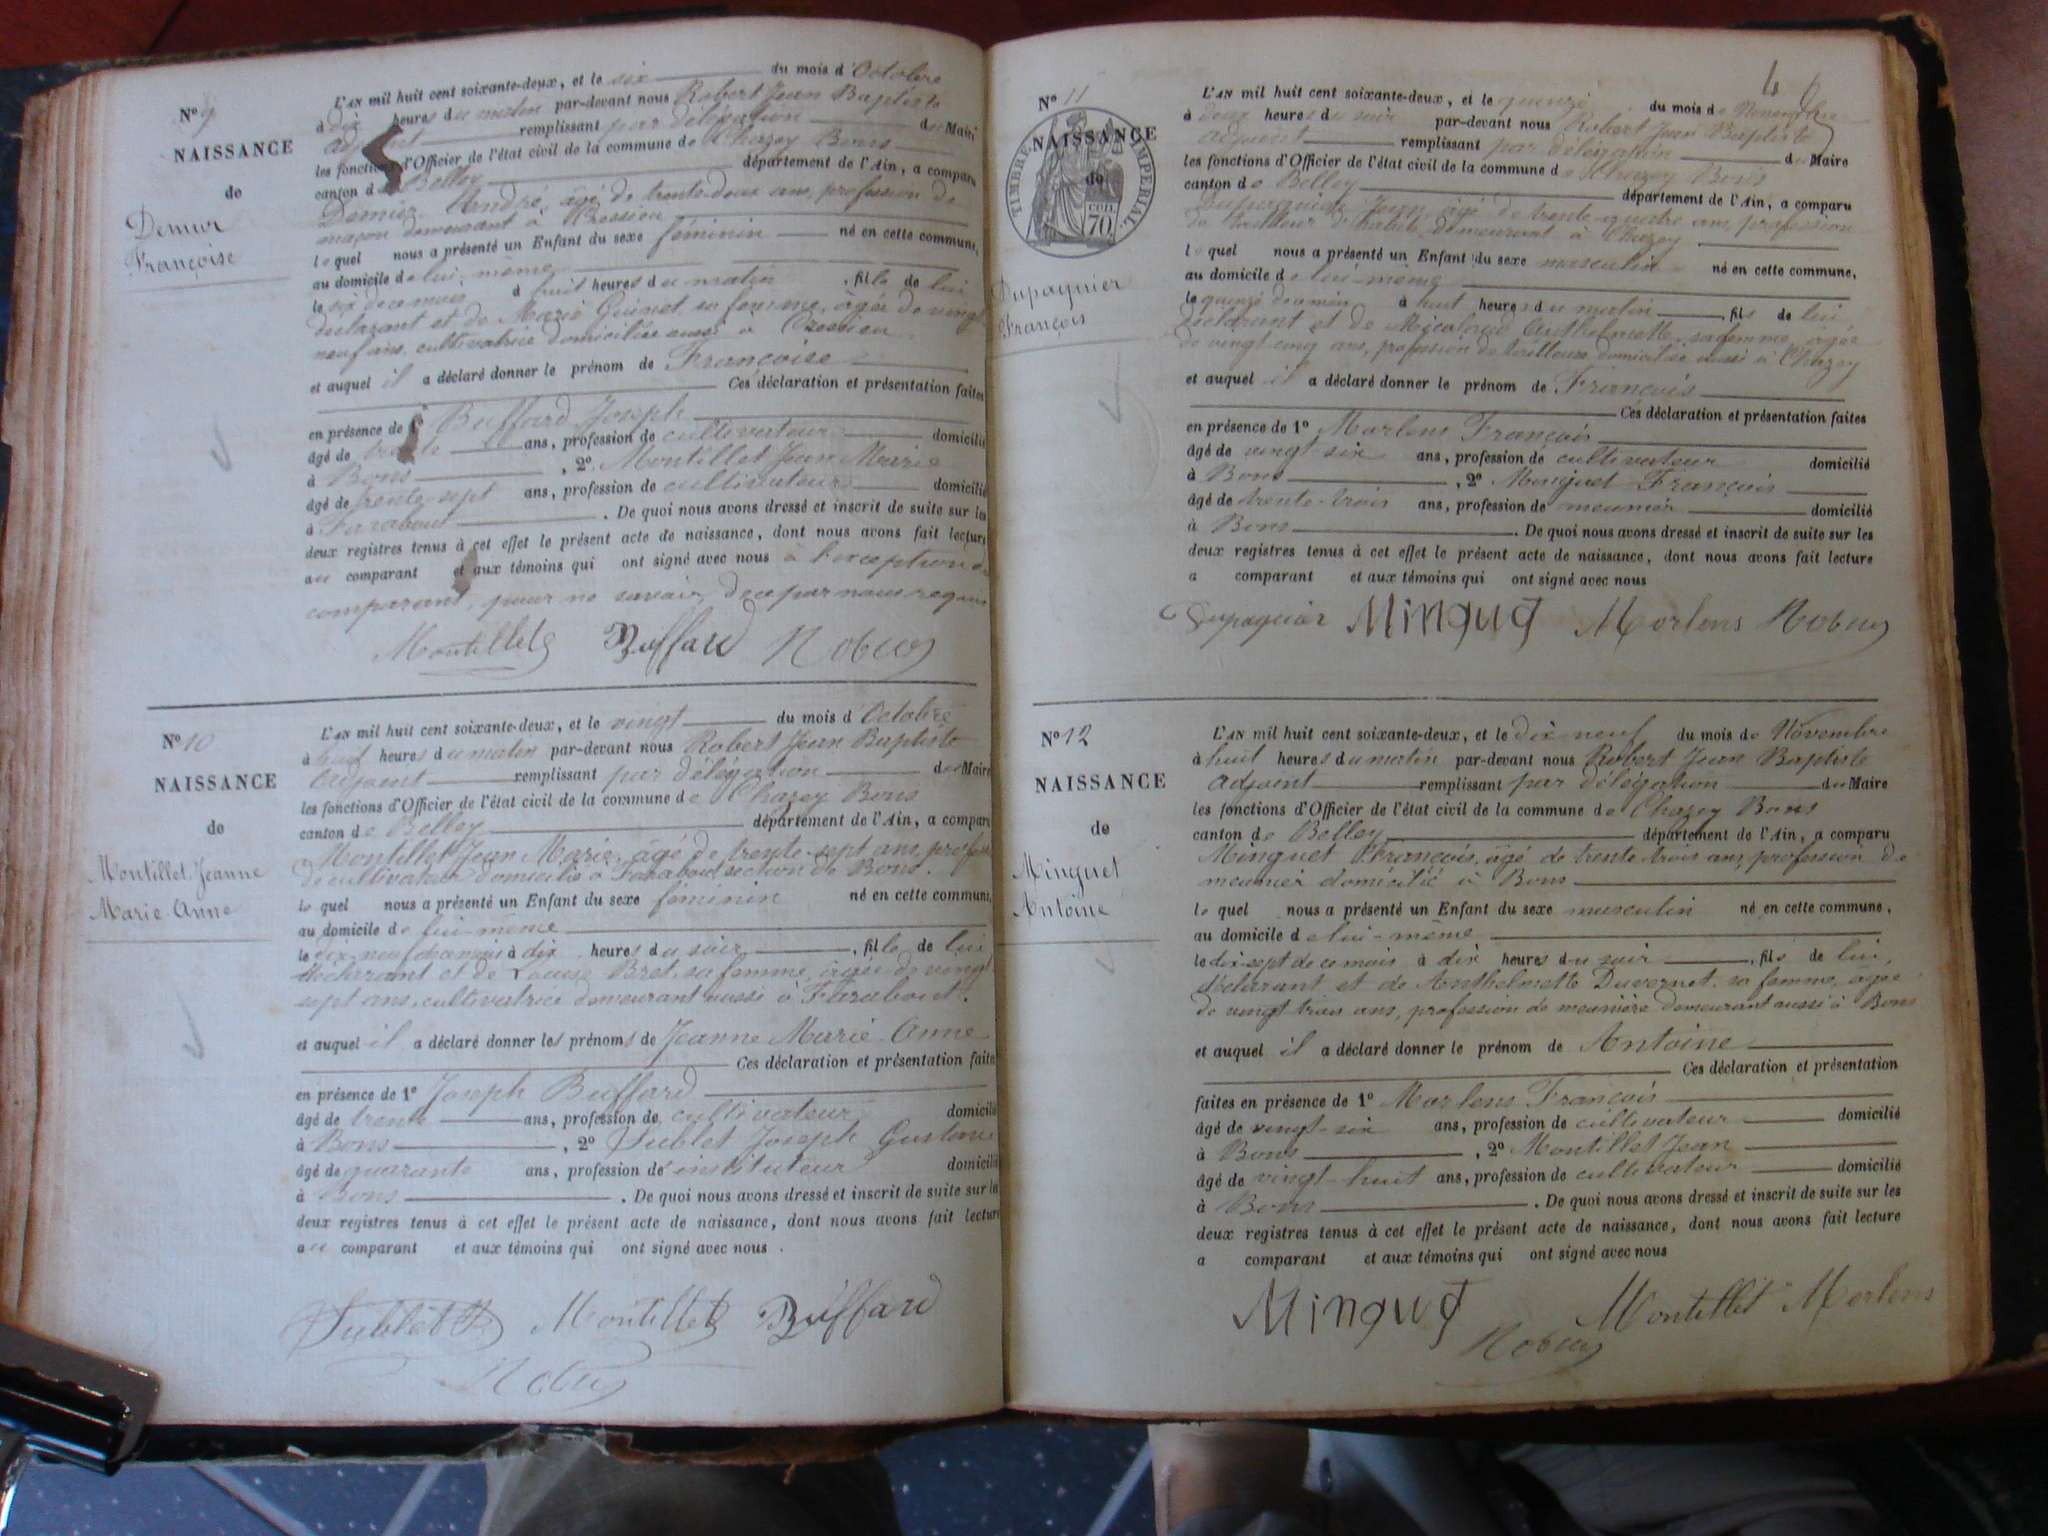 N° 9
NAISSANCE
de
Demur
Françoise
L'AN mil huit cent soixante-deux, et le six du mois d'Octobre
à dix heures du matin par-devant nous Robert Jean Baptiste
adjoint remplissant par délégation du Maire
les fonctions d'Officier de l'état civil de la commune de Chazey Bons
canton de Belley département de l'Ain, a comparu
André, âgé de trente-deux ans, profession de
maçon demeurant à
lequel nous a présenté un Enfant du sexe féminin né en cette commune,
au domicile de lui-même
le six de ce mois à huit heures du matin, fille de lui
déclarant et de Marie Guinet sa femme, âgée de vingt
neuf ans, cultivatrice domiciliée aussi à
et auquel il a déclaré donner le prénom de Françoise
Ces déclaration et présentation faites
en présence de 1° Buffard Joseph
âgé de trente ans, profession de cultivateur domicilié
à Bons, 2° Montillet Jean Marie
âgé de trente-sept ans, profession de cultivateur domicilié
à Faraboud. De quoi nous avons dressé et inscrit de suite sur les
deux registres tenus à cet effet le présent acte de naissance, dont nous avons fait lecture
au comparant et aux témoins qui ont signé avec nous à l'exception du
comparant, pour ne savoir, de ce par nous requis
Montillet Buffard Robert
N° 10
NAISSANCE
de
Montillet Jeanne
Marie Anne
L'AN mil huit cent soixante-deux, et le vingt du mois d'Octobre
à huit heures du matin par-devant nous Robert Jean Baptiste
Adjoint remplissant par délégation du Maire
les fonctions d'Officier de l'état civil de la commune de Chazey Bons
canton de Belley département de l'Ain, a comparu
Montillet Jean Marie, âgé de trente-sept ans, profession
de cultivateur domicilié à Faraboud section de Bons.
lequel nous a présenté un Enfant du sexe féminin né en cette commune,
au domicile de lui-même
le dix-neuf de ce mois à dix heures du soir, fille de lui
déclarant et de Louise Bret, sa femme, âgée de vingt
sept ans, cultivatrice demeurant aussi à Faraboud.
et auquel il a déclaré donner les prénoms de Jeanne Marie Anne
Ces déclaration et présentation faites
en présence de 1° Joseph Buffard
âgé de trente ans, profession de cultivateur domicilié
à Bons, 2° Sublet Joseph Gustave
âgé de quarante ans, profession d'instituteur domicilié
à Bons. De quoi nous avons dressé et inscrit de suite sur les
deux registres tenus à cet effet le présent acte de naissance, dont nous avons fait lecture
au comparant et aux témoins qui ont signé avec nous.
Sublet Montillet Buffard
Robert
N° 11
TIMBRE IMPÉRIAL
CEN. 70
NAISSANCE
de
Dupaquier
François
L'AN mil huit cent soixante-deux, et le quinze du mois de Novembre
à deux heures du soir par-devant nous Robert Jean Baptiste
adjoint remplissant par délégation du Maire
les fonctions d'Officier de l'état civil de la commune de Chazey Bons
canton de Belley département de l'Ain, a comparu
Dupaquier Jean, âgé de trente-quatre ans, profession
de tailleur d'habits demeurant à Chazey
lequel nous a présenté un Enfant du sexe masculin né en cette commune,
au domicile de lui-même
le quinze de ce mois à huit heures du matin, fils de lui
déclarant et de Anthelmette, sa femme, âgée
de vingt-cinq ans, profession de tailleuse domiciliée aussi à Chazey
et auquel il a déclaré donner le prénom de François
Ces déclaration et présentation faites
en présence de 1° Merlens François
âgé de vingt-six ans, profession de cultivateur domicilié
à Bons, 2° Minguet François
âgé de trente-trois ans, profession de meunier domicilié
à Bons. De quoi nous avons dressé et inscrit de suite sur les
deux registres tenus à cet effet le présent acte de naissance, dont nous avons fait lecture
a comparant et aux témoins qui ont signé avec nous
Dupaquier Minguet Merlens Robert
N° 12
NAISSANCE
de
Minguet
Antoine
L'AN mil huit cent soixante-deux, et le dix-neuf du mois de Novembre
à huit heures du matin par-devant nous Robert Jean Baptiste
Adjoint remplissant par délégation du Maire
les fonctions d'Officier de l'état civil de la commune de Chazey Bons
canton de Belley département de l'Ain, a comparu
Minguet François, âgé de trente trois ans, profession de
meunier domicilié à Bons
lequel nous a présenté un Enfant du sexe masculin né en cette commune,
au domicile de lui-même
le dix-sept de ce mois à dix heures du soir, fils de lui,
déclarant et de Anthelmette Duvernet, sa femme, âgée
de vingt-trois ans, profession de meunière demeurant aussi à Bons
et auquel il a déclaré donner le prénom de Antoine
Ces déclaration et présentation
faites en présence de 1° Merlens François
âgé de vingt-six ans, profession de cultivateur domicilié
à Bons, 2° Montillet Jean
âgé de vingt-huit ans, profession de cultivateur domicilié
à Bons. De quoi nous avons dressé et inscrit de suite sur les
deux registres tenus à cet effet le présent acte de naissance, dont nous avons fait lecture
a comparant et aux témoins qui ont signé avec nous
Minguet Montillet Merlens
Robert